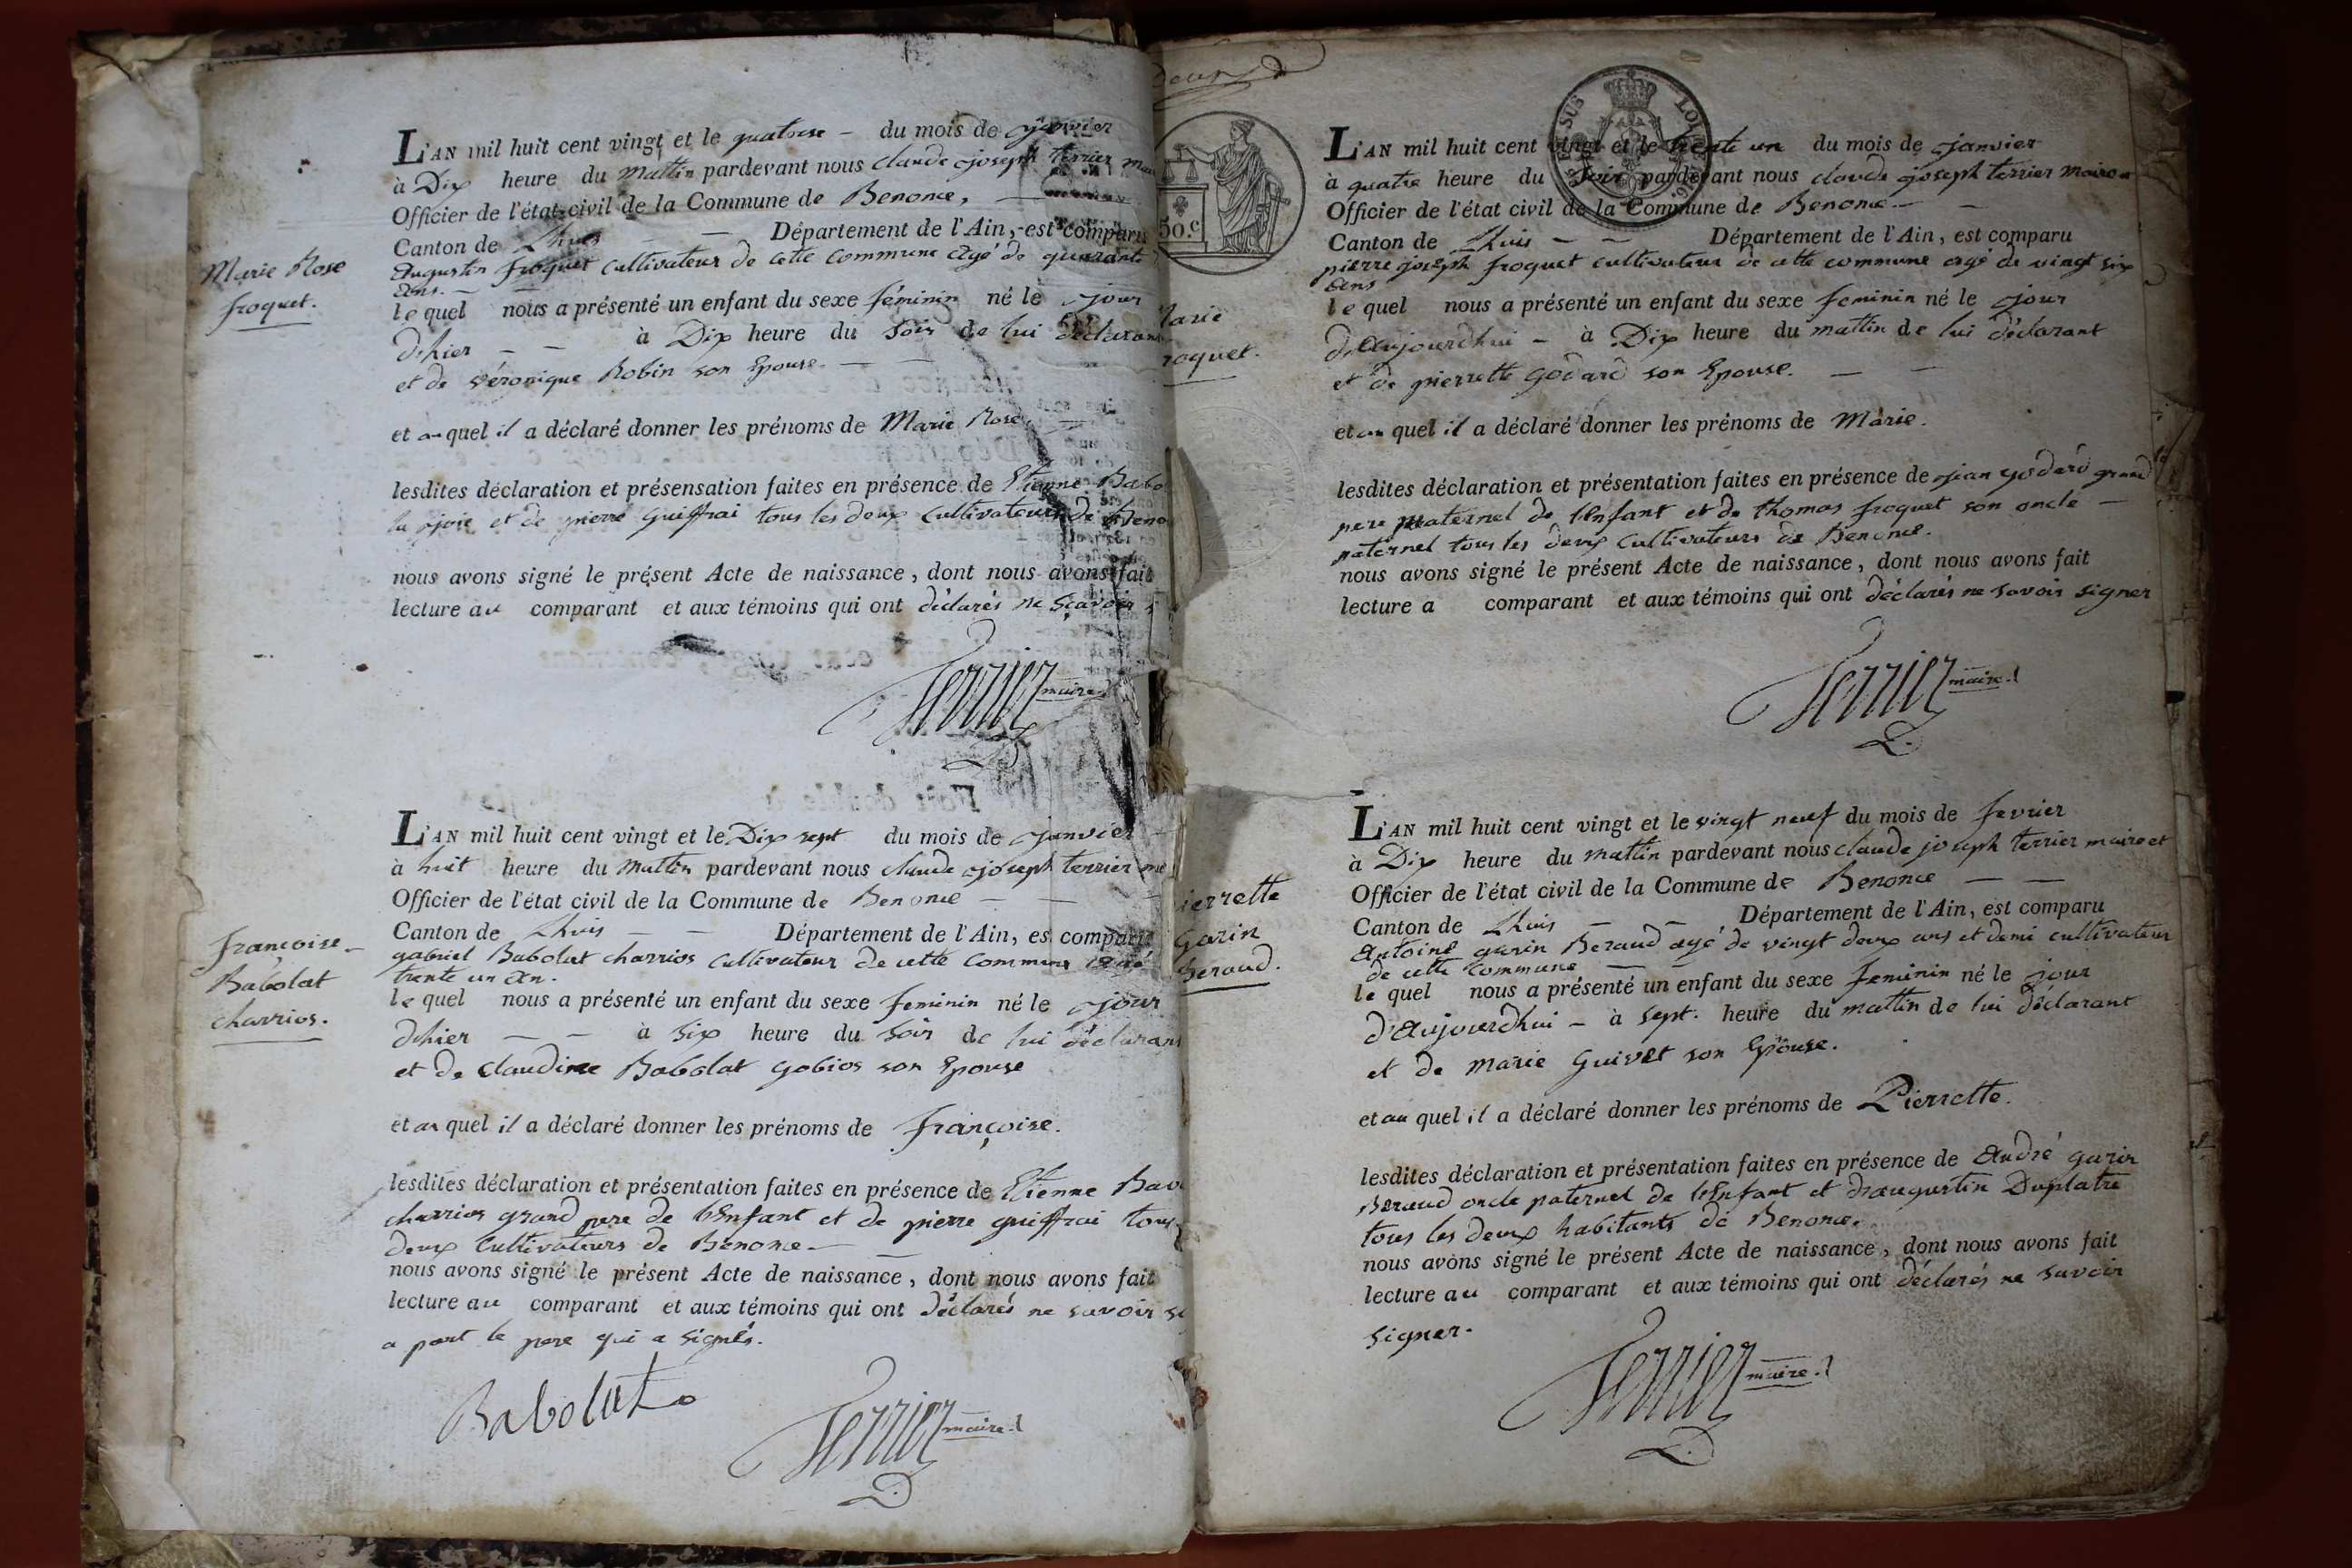 Marie Rose
froquet.
L'AN mil huit cent vingt et le quatorse - du mois de janvier
à Dix heure du mattin pardevant nous claude joseph terrier
Officier de l'état civil de la Commune de Benonce,
Canton de Lhuis - - Département de l'Ain, est comparu
Augustin froquet cultivateur de cette commune agé de quarante
ans. -
lequel nous a présenté un enfant du sexe féminin né le jour
d'hier - - à Dix heure du soir de lui déclarant
et de véronique Robin son Epouse. -
et au quel il a déclaré donner les prénoms de Marie Rose
lesdites déclaration et présensation faites en présence de Etienne Babo
la joie et de pierre guiffrai tous les deux cultivateurs de Beno
nous avons signé le présent Acte de naissance, dont nous avons fait
lecture au comparant et aux témoins qui ont déclarés ne sçavoir
Terrier maire
françoise
Babolat
charrios.
L'AN mil huit cent vingt et le Dix sept du mois de janvier -
à huit heure du mattin pardevant nous claude joseph terrier
Officier de l'état civil de la Commune de Benonce - -
Canton de Lhuis - - Département de l'Ain, est comparu
gabriel Babolat charrios cultivateur de cette commune agé
trente un an.
lequel nous a présenté un enfant du sexe feminin né le jour
d'hier - - à six heure du soir de lui déclarant
et de claudine Babolat gobios son Epouse
et au quel il a déclaré donner les prénoms de françoise.
lesdites déclaration et présentation faites en présence de Etienne
charrios grand pere de l'Enfant et de pierre guiffrai tous
deux Cultivateurs de Benonce -
nous avons signé le présent Acte de naissance, dont nous avons fait
lecture au comparant et aux témoins qui ont déclarés ne savoir
a part le pere qui a signés.
Babolat
Terrier maire
50.c
LOI
SUS
arie
roquet.
L'AN mil huit cent vingt et le trente un du mois de janvier
à quatre heure du soir pardevant nous claude joseph terrier maire
Officier de l'état civil de la Commune de Benonce - -
Canton de Lhuis - - Département de l'Ain, est comparu
pierre joseph froquet cultivateur de cette commune agé de vingt six
ans
lequel nous a présenté un enfant du sexe feminin né le jour
d'Aujourdhui - à Dix heure du mattin de lui déclarant
et de pierrette godard son Epouse. - -
et au quel il a déclaré donner les prénoms de Marie.
lesdites déclaration et présentation faites en présence de jean godard grand
pere maternel de l'Enfant et de thomas froquet son oncle -
paternel tous les deux cultivateurs de Benonce.
nous avons signé le présent Acte de naissance, dont nous avons fait
lecture a comparant et aux témoins qui ont déclarés ne savoir signer
Terrier maire
ierrette
Garin
Beraud.
L'AN mil huit cent vingt et le vingt neuf du mois de fevrier
à Dix heure du mattin pardevant nous claude joseph terrier maire et
Officier de l'état civil de la Commune de Benonce - -
Canton de Lhuis - - Département de l'Ain, est comparu
Antoine garin Beraud agé de vingt deux ans et demi cultivateur
de cette commune -
lequel nous a présenté un enfant du sexe feminin né le jour
d'Aujourdhui - à sept. heure du mattin de lui déclarant
et de marie Guivet son Epouse.
et au quel il a déclaré donner les prénoms de Pierrette.
lesdites déclaration et présentation faites en présence de André garin
Beraud oncle paternel de l'Enfant et d'augustin Duplatre
tous les deux habitants de Benonce.
nous avons signé le présent Acte de naissance, dont nous avons fait
lecture au comparant et aux témoins qui ont déclarés ne savoir
signer.
Terrier maire